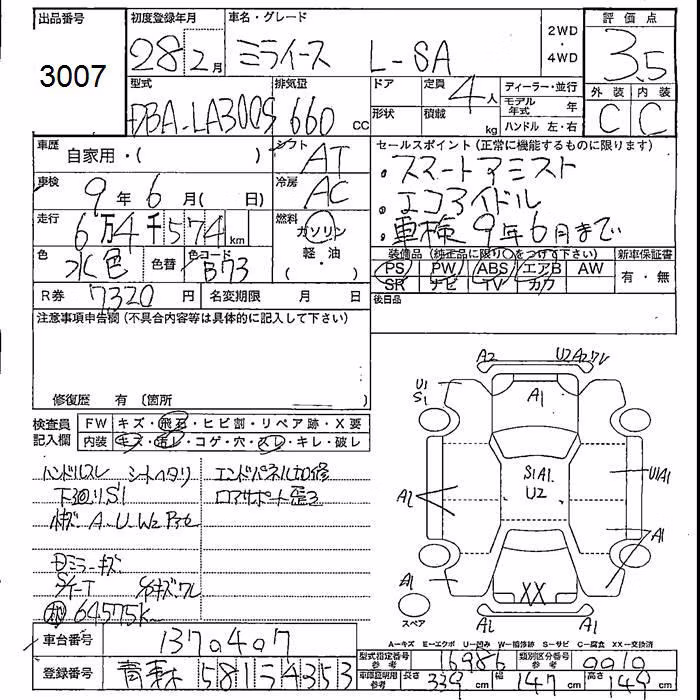 出品番号 初度登録年月 車名・グレード 2WD・4WD 評価点
3007 28年2月 ミライース L-SA 3.5
型式 排気量 ドア 定員 4人 ディーラー・並行 外装 内装
DBA-LA300S 660cc 形状 積載 kg モデル年式 年 C C
ハンドル 左・右
車歴 自家用・( ) シフト AT セールスポイント(正常に機能するものに限ります)
車検 9年6月( 日) 冷房 AC ・スマートアシスト
・エコアイドル
走行 6万4千574km 燃料 ガソリン 軽・油 ( ) ・車検9年6月まで
色 水色 色替 色コード B73 装備品(純正品に限り○をつけて下さい) 新車保証書
PS PW ABS エアB AW 有・無
SR ナビ TV カワ
R券 7320円 名変期限 月 日 後日品
注意事項申告欄(不具合内容等は具体的に記入して下さい)
修復歴 有 〔箇所 〕
検査員記入欄 FW キズ・飛石・ヒビ割・リペア跡・X要
内装 キズ・汚レ・コゲ・穴・スレ・キレ・破レ
ハンドルスレ シートヘタリ エンドパネル加修
下廻りS1 ロアサポート歪み
小キズ A-U-W2
Dミラーキズ
64575K
A2 U2A2ワレ
U1 S1 A1
S1A1 U2 U1A1
A1 A1
A1 XX
スペア A1 A1
A-キズ E-エクボ U-凹み W-補修跡 S-サビ C-腐食 XX-交換済
車台番号 1370407 型式指定番号 参考 16986 類別区分番号 参考 0010
登録番号 581 54353 車庫証明用 参考 長さ 339cm 幅 147cm 高さ 149cm